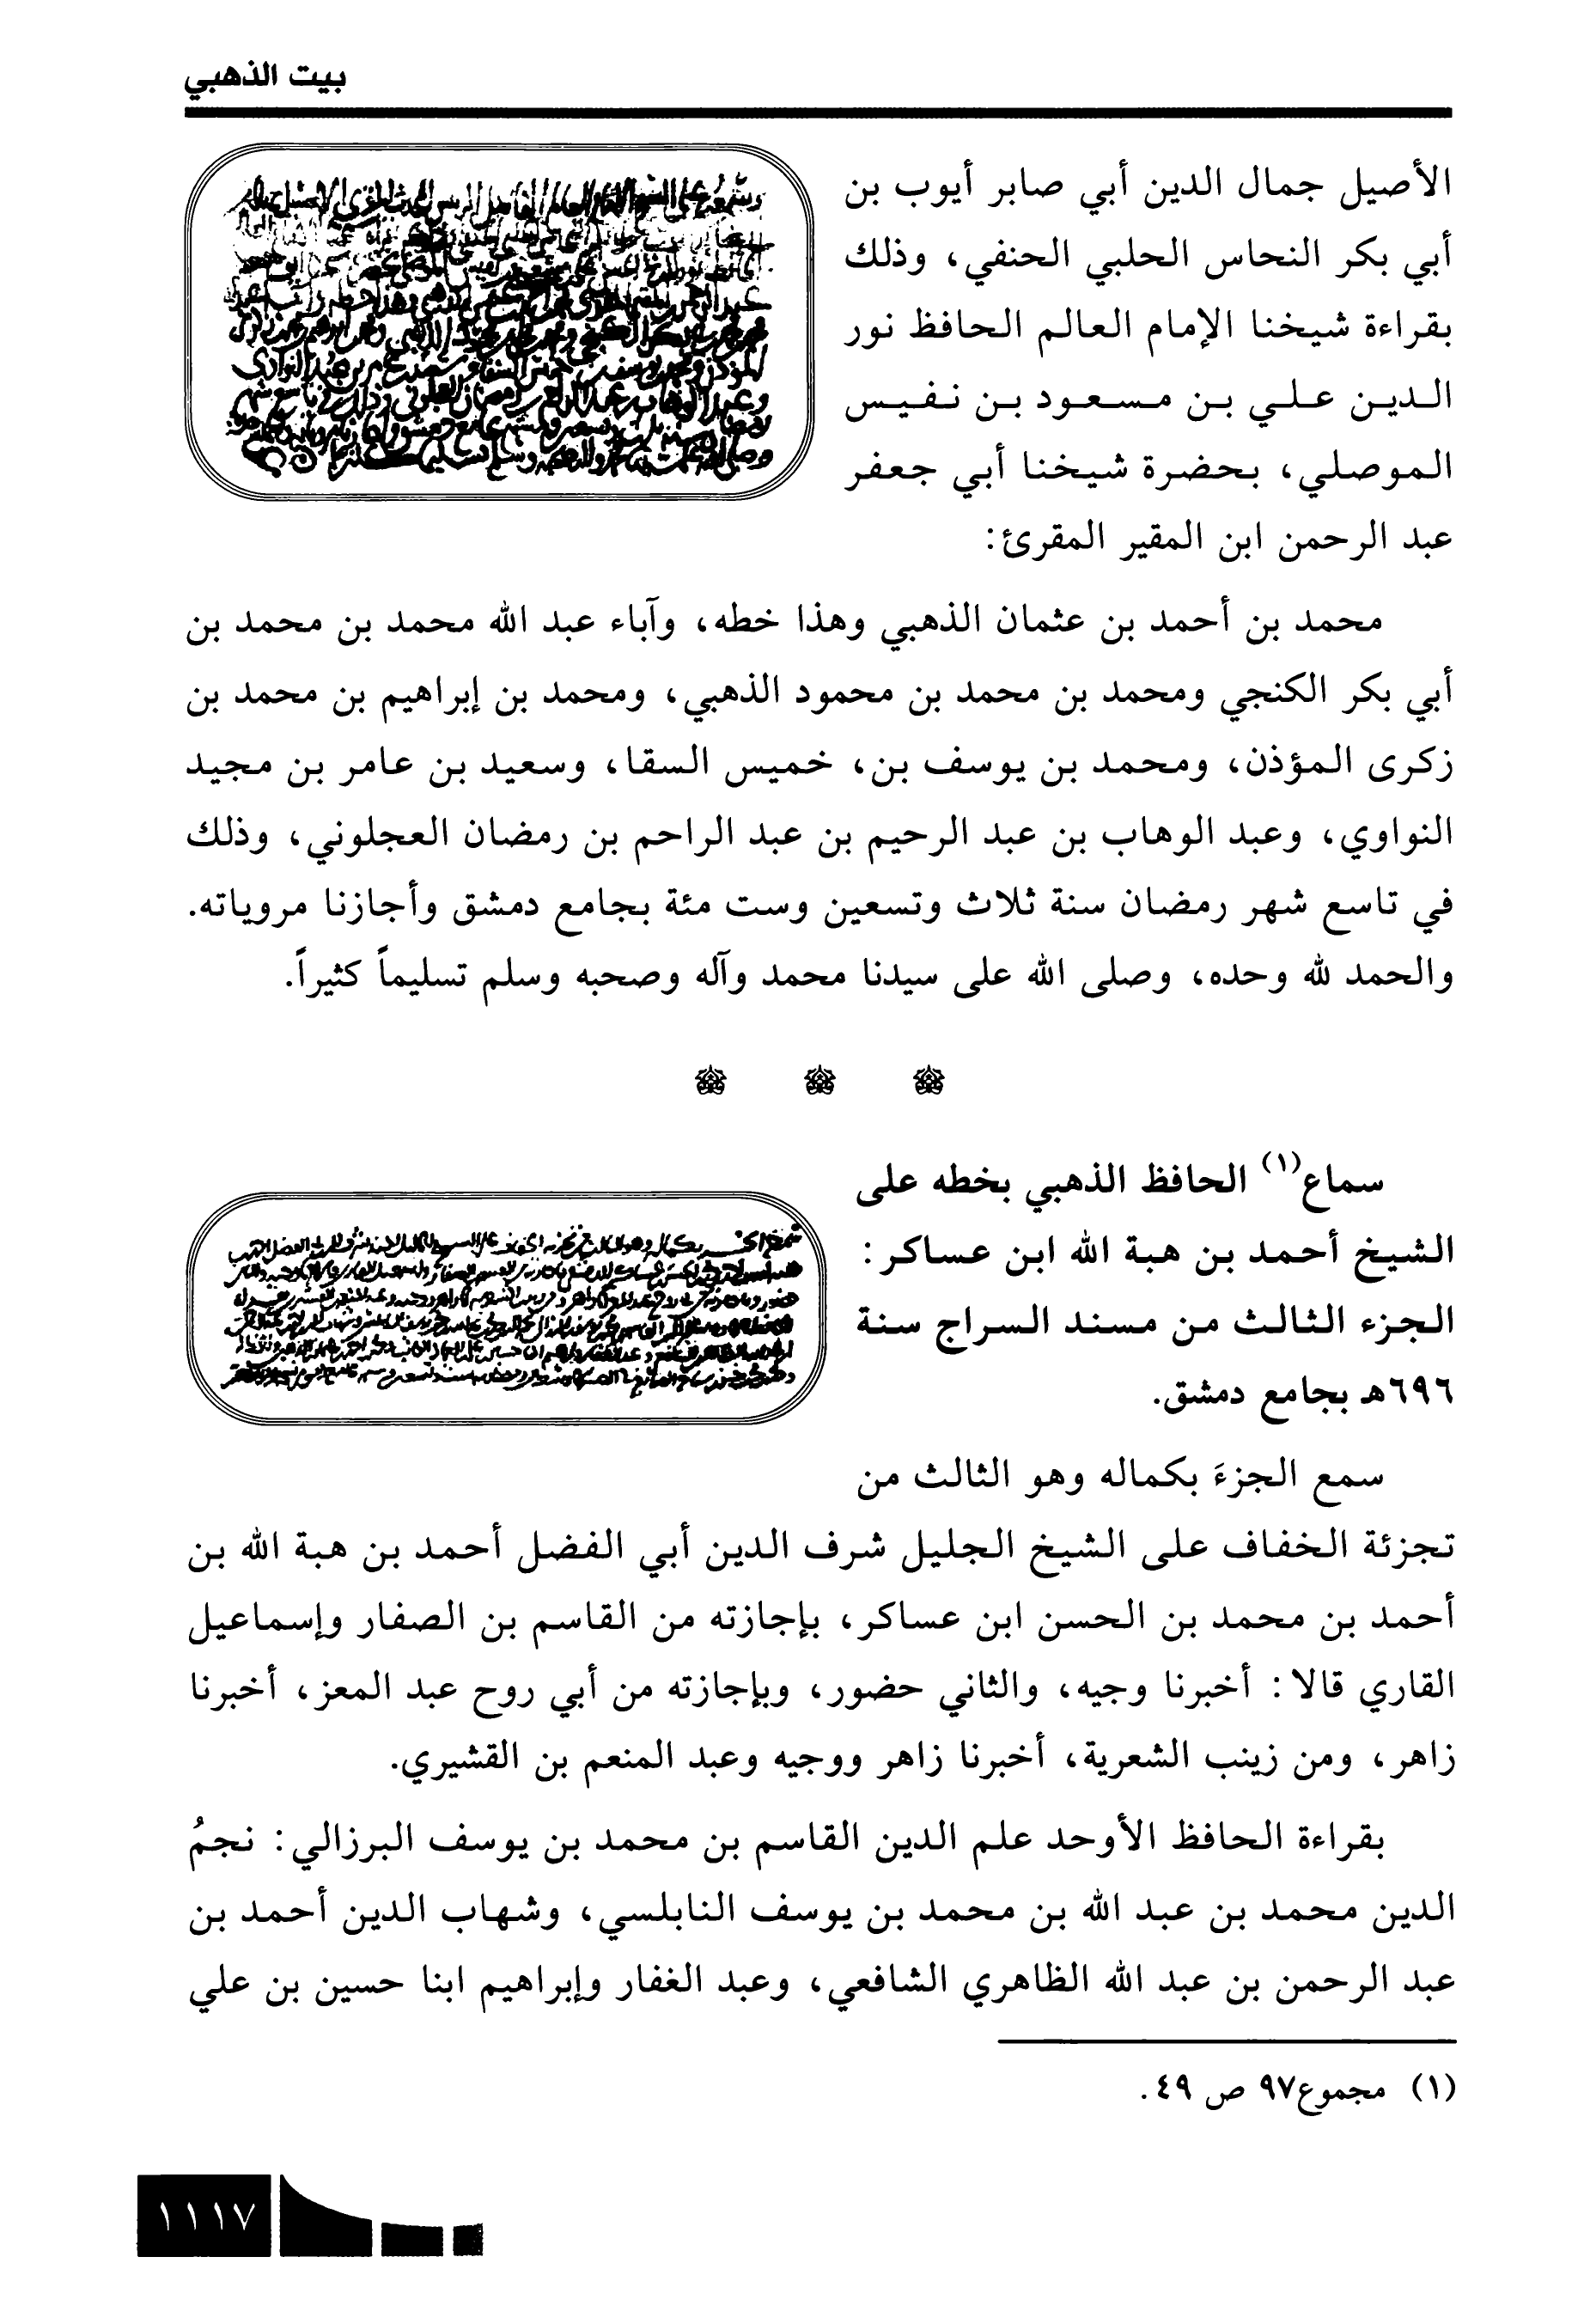 بيت الذهبي
الأصيل جمال الدين أبي صابر أيوب بن
أبي بكر النحاس الحلبي الحنفي، وذلك
بقراءة شيخنا الإمام العالم الحافظ نور
الدين علي بن مسعود بن نفيس
الموصلي، بحضرة شيخنا أبي جعفر
عبد الرحمن ابن المقير المقرئ:
محمد بن أحمد بن عثمان الذهبي وهذا خطه، وآباء عبد الله محمد بن محمد بن
أبي بكر الكنجي ومحمد بن محمد بن محمود الذهبي، ومحمد بن إبراهيم بن محمد بن
زكرى المؤذن، ومحمد بن يوسف بن، خميس السقا، وسعيد بن عامر بن مجيد
النواوي، وعبد الوهاب بن عبد الرحيم بن عبد الراحم بن رمضان العجلوني، وذلك
في تاسع شهر رمضان سنة ثلاث وتسعين وست مئة بجامع دمشق وأجازنا مروياته.
والحمد لله وحده، وصلى الله على سيدنا محمد وآله وصحبه وسلم تسليماً كثيراً.
سماع(١) الحافظ الذهبي بخطه على
الشيخ أحمد بن هبة الله ابن عساكر:
الجزء الثالث من مسند السراج سنة
٦٩٦هـ بجامع دمشق.
سمع الجزءَ بكماله وهو الثالث من
تجزئة الخفاف على الشيخ الجليل شرف الدين أبي الفضل أحمد بن هبة الله بن
أحمد بن محمد بن الحسن ابن عساكر، بإجازته من القاسم بن الصفار وإسماعيل
القاري قالا: أخبرنا وجيه، والثاني حضور، وبإجازته من أبي روح عبد المعز، أخبرنا
زاهر، ومن زينب الشعرية، أخبرنا زاهر ووجيه وعبد المنعم بن القشيري.
بقراءة الحافظ الأوحد علم الدين القاسم بن محمد بن يوسف البرزالي: نجمُ
الدين محمد بن عبد الله بن محمد بن يوسف النابلسي، وشهاب الدين أحمد بن
عبد الرحمن بن عبد الله الظاهري الشافعي، وعبد الغفار وإبراهيم ابنا حسين بن علي
(١) مجموع٩٧ ص ٤٩.
١١١٧